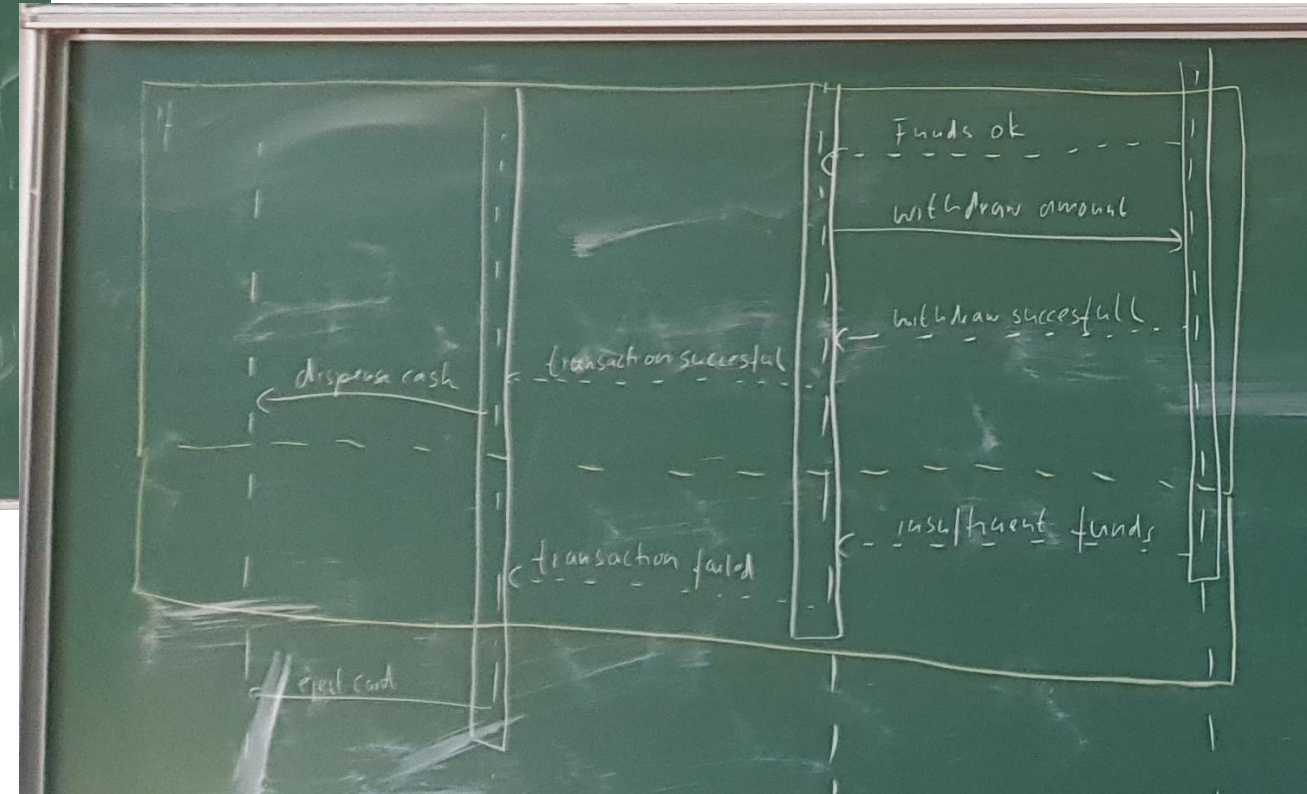 if
Funds ok
withdraw amount
withdraw succesfull
transaction succesful
dispense cash
insufficient funds
transaction failed
eject card